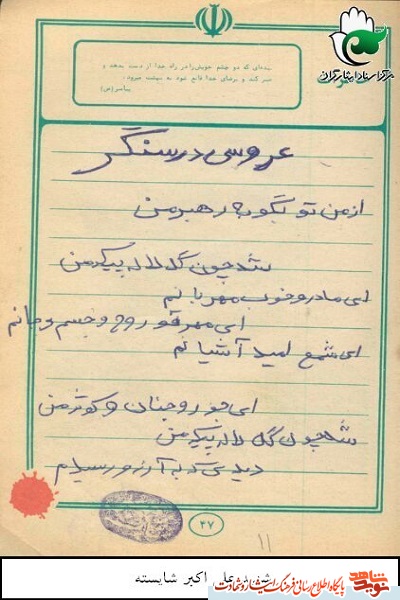 بنده‌ای که دو چشم خویش را در راه خدا از دست بدهد و
صبر کند و برضای خدا قانع شود به بهشت میرود.
پیامبر (ص)
مرکز اسناد ایثارگران
عروسی در سنگر
از من تو بگو به رهبر من
شد چون گل لاله پیکر من
ای مادر و خوب مهربانم
ای مهر تو روح و جسم و جانم
ای شمع امید آشیانم
ای حور و جنان و کوثر من
شد چون گل لاله پیکر من
دیدی که به آرزو رسیدم
۴۷
۱۱
علی اکبر شایسته
نوید شاهد
پایگاه اطلاع رسانی فرهنگ ایثار و شهادت